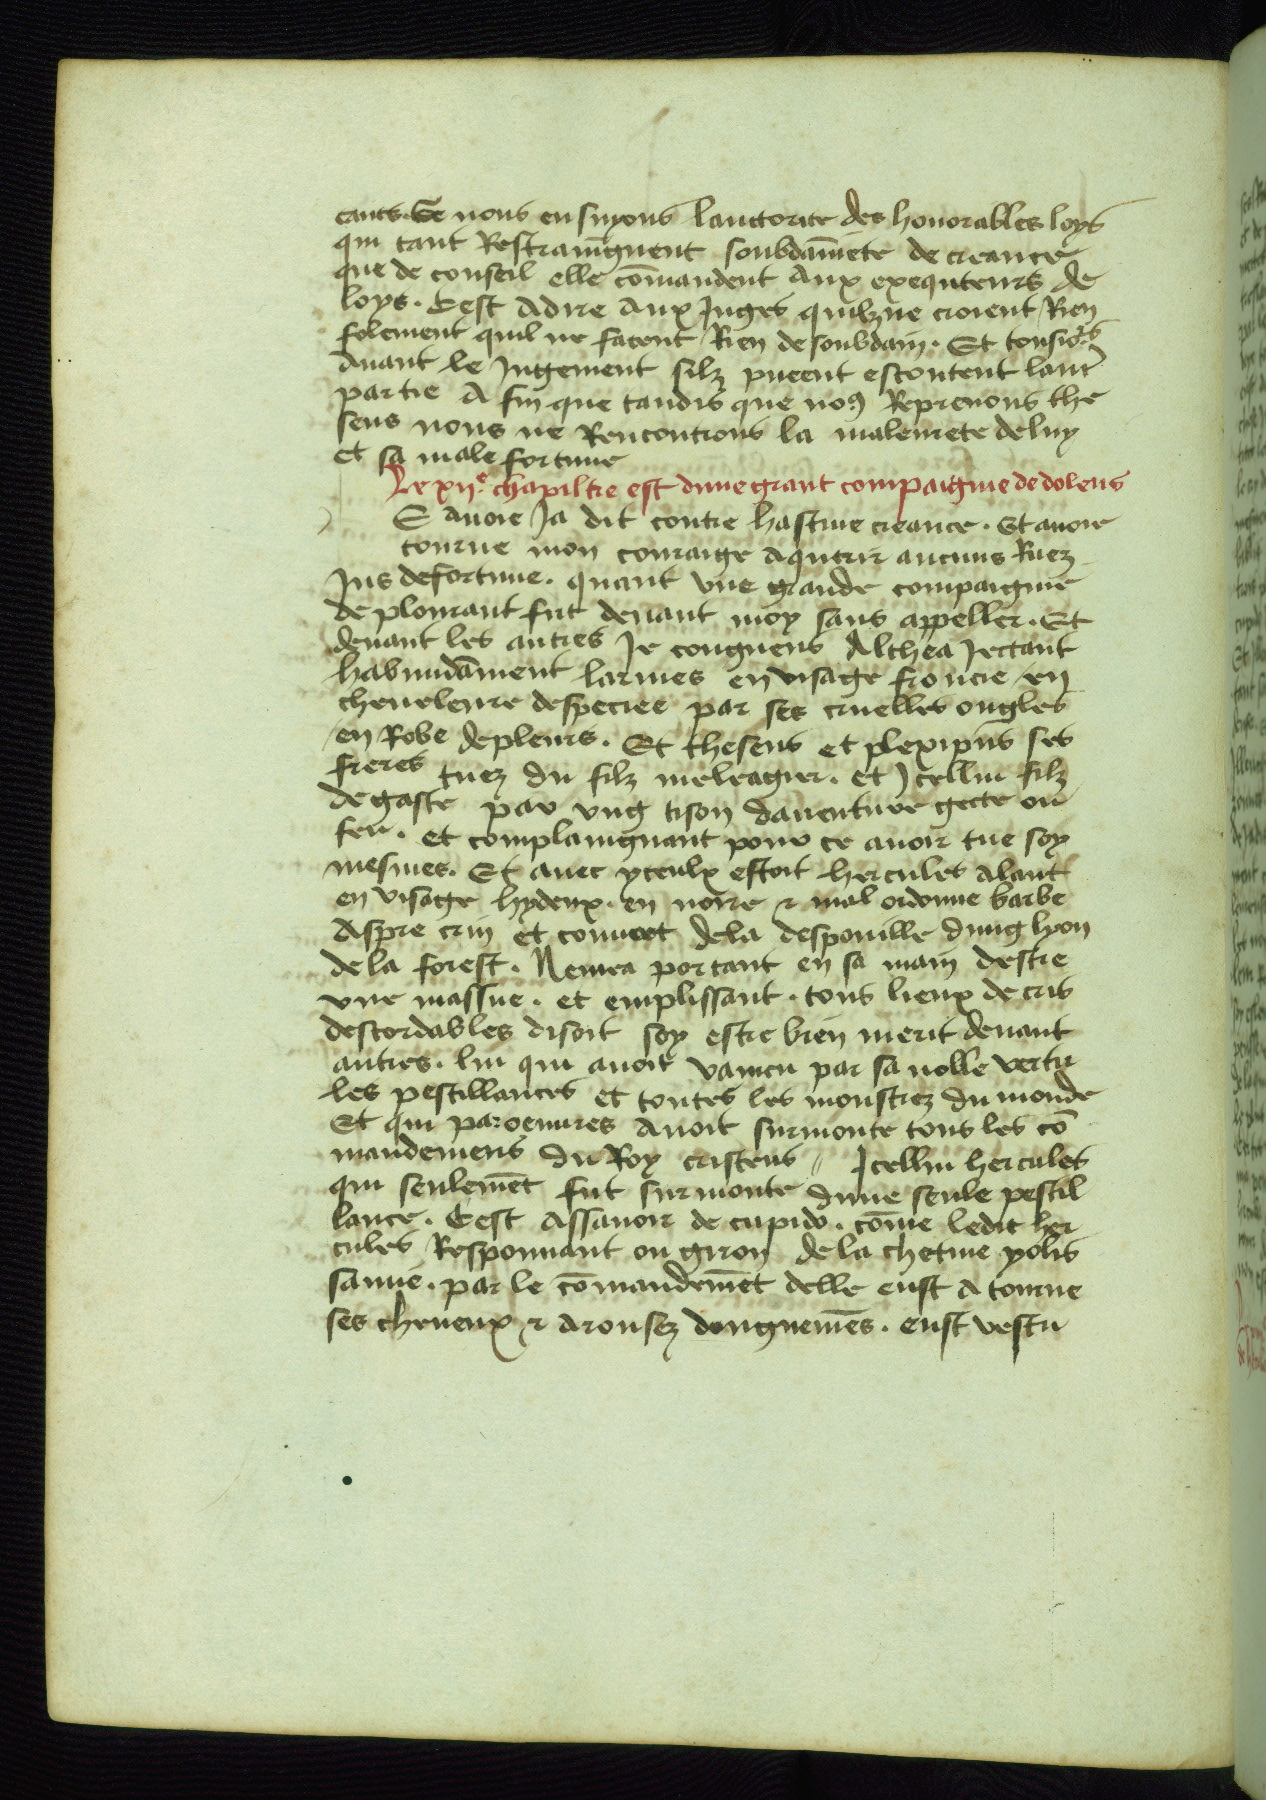 cants. Se nous ensuyons lauctorite des honorables loys
qui tant Restraingnent soubdainete de creance
que de conseil elle cōmandent Aux exequteurs de
loys. Cest Adire Aux Juges quilz ne croient Rien
folement quil ne facent Rien de soubdain. Et tousio's
Avant le Jugement silz pueent escoutent laut'
partie A fin que tandis que noꝯ Reprenons the
seus nous ne Rencontrons la maleurete deluy
et sa male fortune
Le xije chapiltre est dune grant compaignie de dolens
E avoie Ja dit contre hastiue creance. Et avoie
tourne mon couraige Aquerir aucuns Ruez
Jus defortune. quant vne grande compaignie
de plourant fut deuant moy sans appeller. Et
deuant les autres Je congneus Althea Jectant
habundāment larmes en visage froncie en
cheueleure despeciee par ses cruelles ongles
en Robe depleurs. Et theseus et plexipus ses
freres tuez du filz meleagier. et Jcellui filz
degaste par vng tison dauenture gecte ou
feu. et complaingnant pour ce avoir tue soy
mesmes. Et avec yceulx estoit hercules Alant
en visage hydeux. en noire ⁊ mal ordonne barbe
Aspre crin et couuert dela despouille dung lyon
de la forest. Nemea portant en sa main destre
vne massue. et emplissant. tous lieux de cris
descordables disoit soy estre bien merit deuant
autres. lui qui avoit vaincu par sa nolle vertu
les pestillances et toutes les monstrez du monde
Et qui par oeuures Avoit surmonte tous les cō
mandemens du Roy cristeus // Jcellui hercules
qui seulemēt fut surmonte dune seule pestil
lance. Cest Assavoir de cupido. cōme ledit her
cules Responnant ou giron de la chetiue yolis
samie. par le cōmandemēt delle eust A tourne
ses cheueux ⁊ Arousez dongnemēs. eust vestu